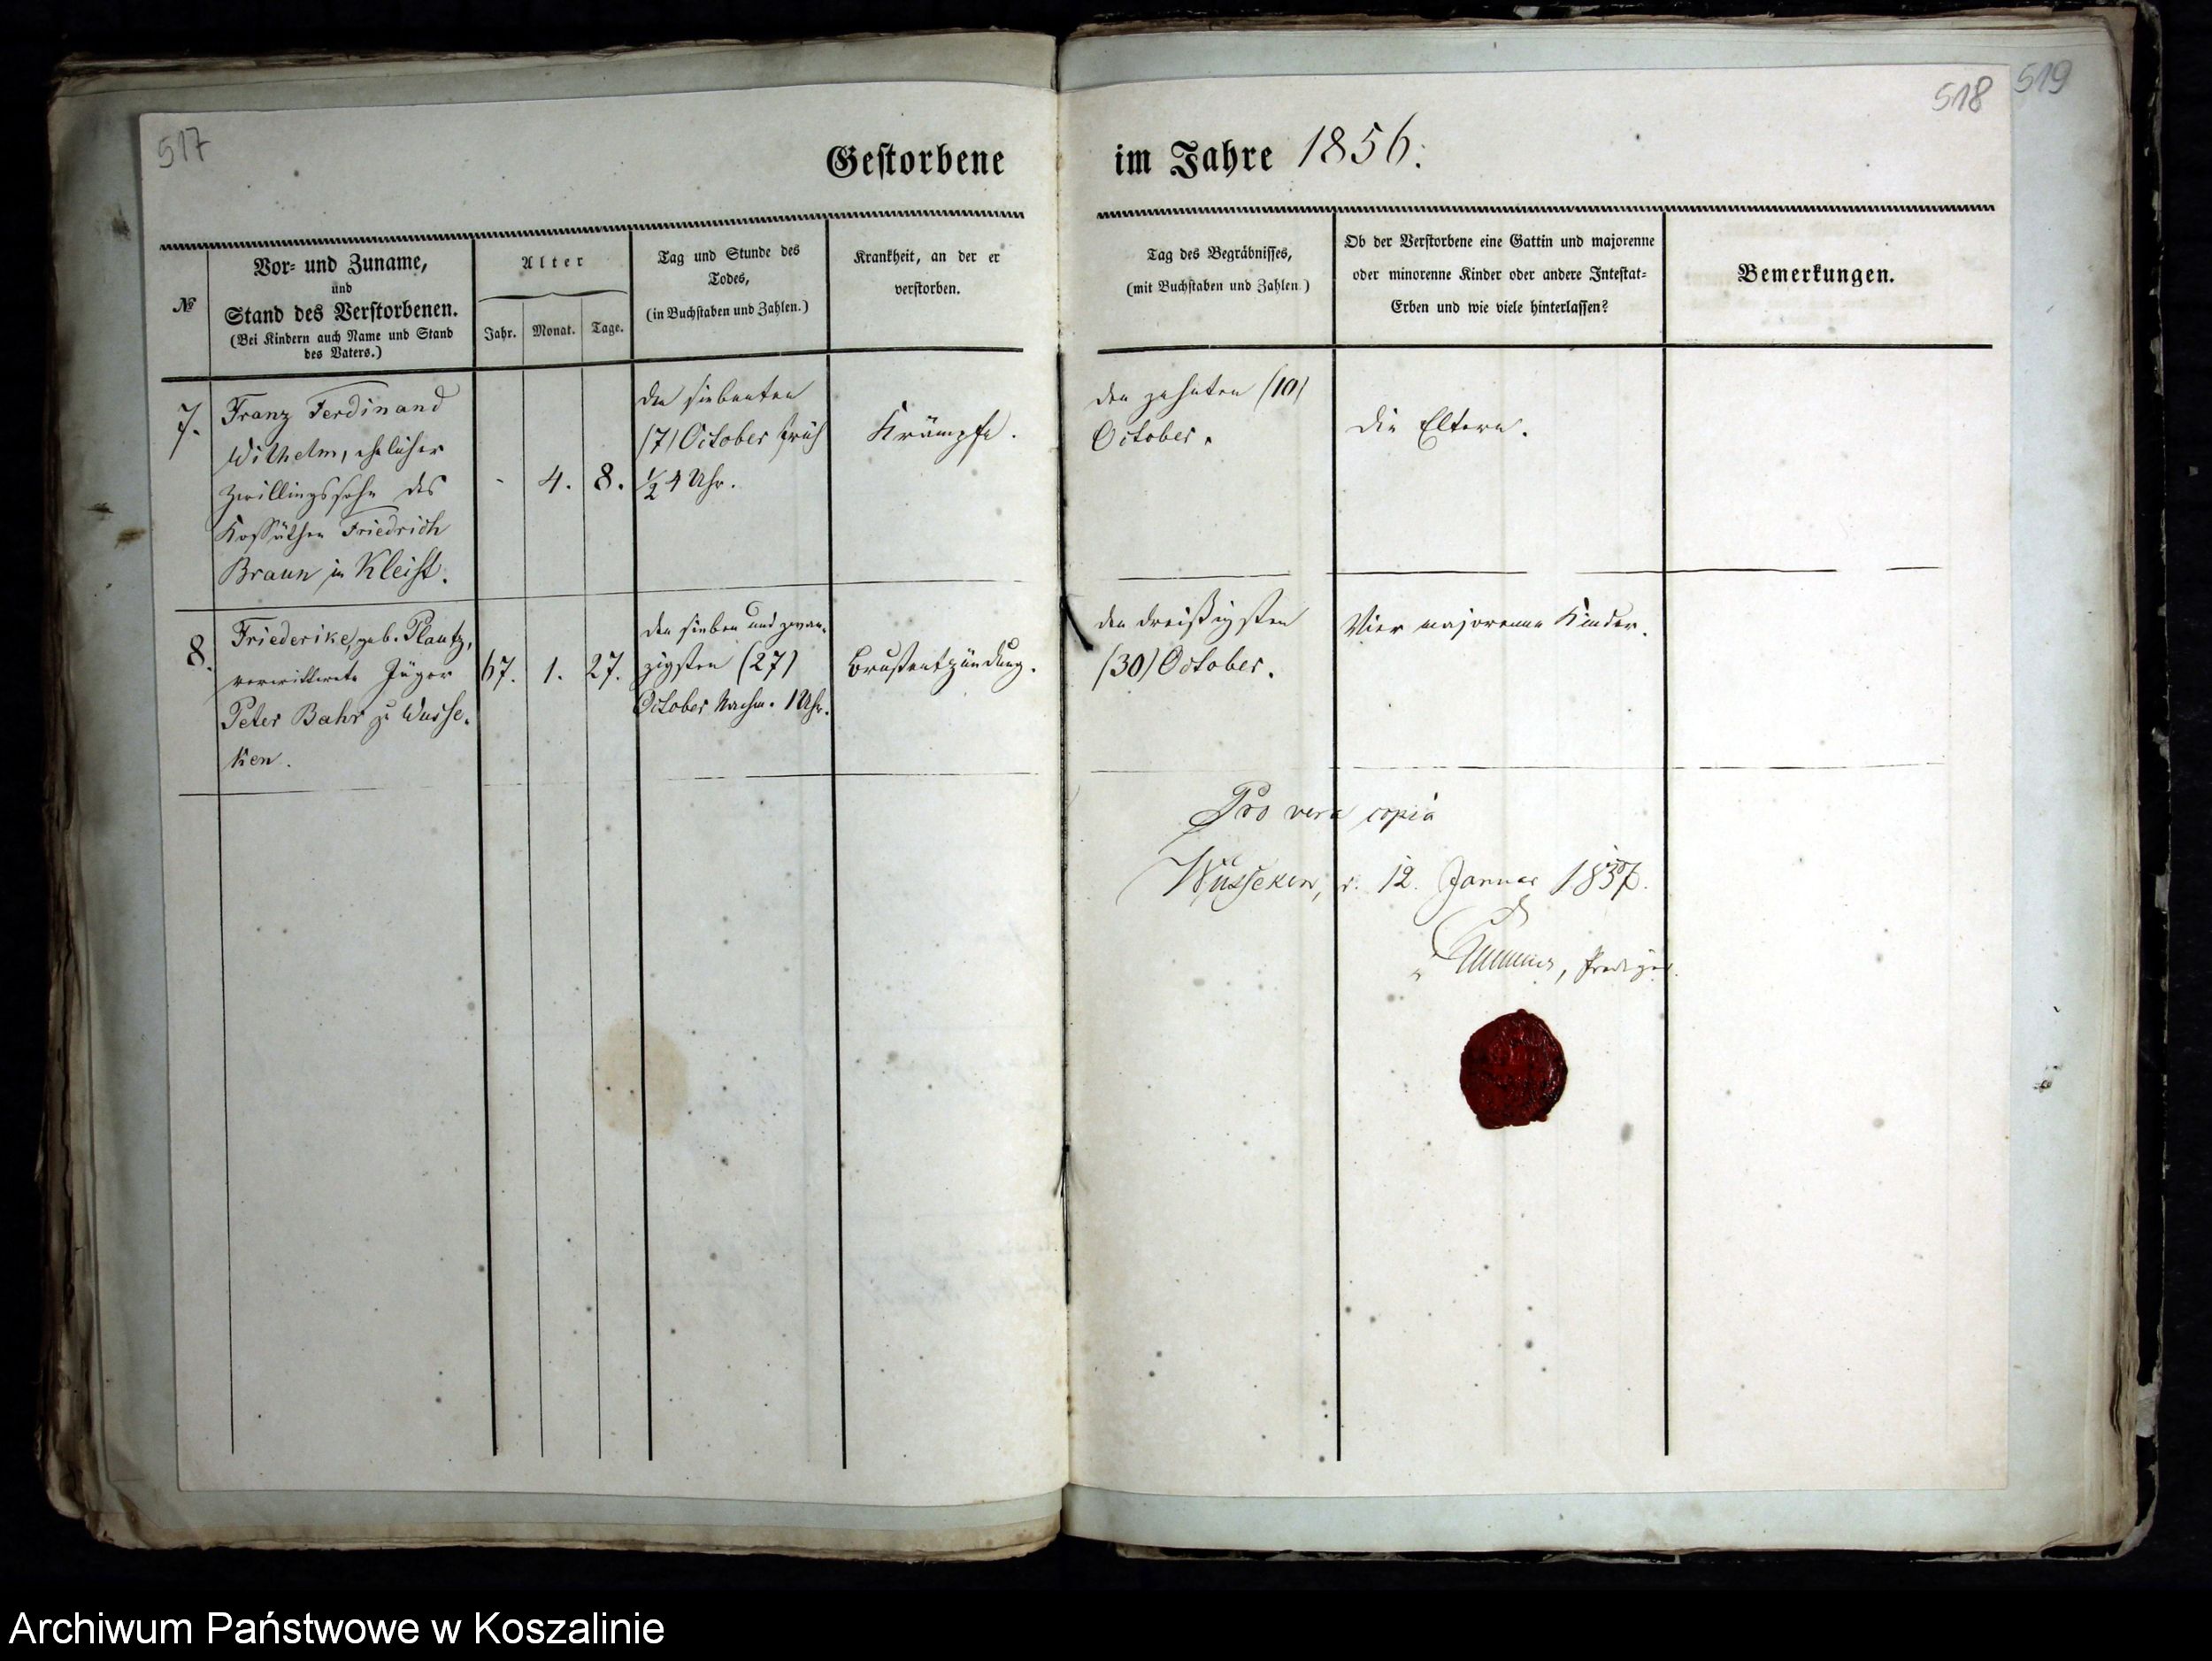 517
518
519
Gestorbene im Jahre 1856.
№
Vor- und Zuname,
und
Stand des Verstorbenen.
(Bei Kindern auch Name und Stand
des Vaters.)
Alter
Jahr. Monat. Tage.
Tag und Stunde des
Todes,
(in Buchstaben und Zahlen.)
Krankheit, an der er
verstorben.
Tag des Begräbnisses,
(mit Buchstaben und Zahlen.)
Ob der Verstorbene eine Gattin und majorenne
oder minorenne Kinder oder andere Intestat-
Erben und wie viele hinterlassen?
Bemerkungen.
7.
Franz Ferdinand
Wilhelm, ehelicher
Zwillingssohn des
Kossäthen Friedrich
Braun in Kleist.
- 4. 8.
den siebenten
(7) October früh
½ 4 Uhr.
Krämpfe.
den zehnten (10)
October.
Die Eltern.
8.
Friederike, geb. Plautz,
verwittwete Jäger
Peter Bahr zu Wusse-
ken.
67. 1. 27.
den sieben und zwan-
zigsten (27)
October Nachm. 1 Uhr.
Brustentzündung.
den dreißigsten
(30) October.
Vier majorenne Kinder.
Pro vera copia
Wusseken, d. 12. Januar 1857.
Prediger.
Archiwum Państwowe w Koszalinie